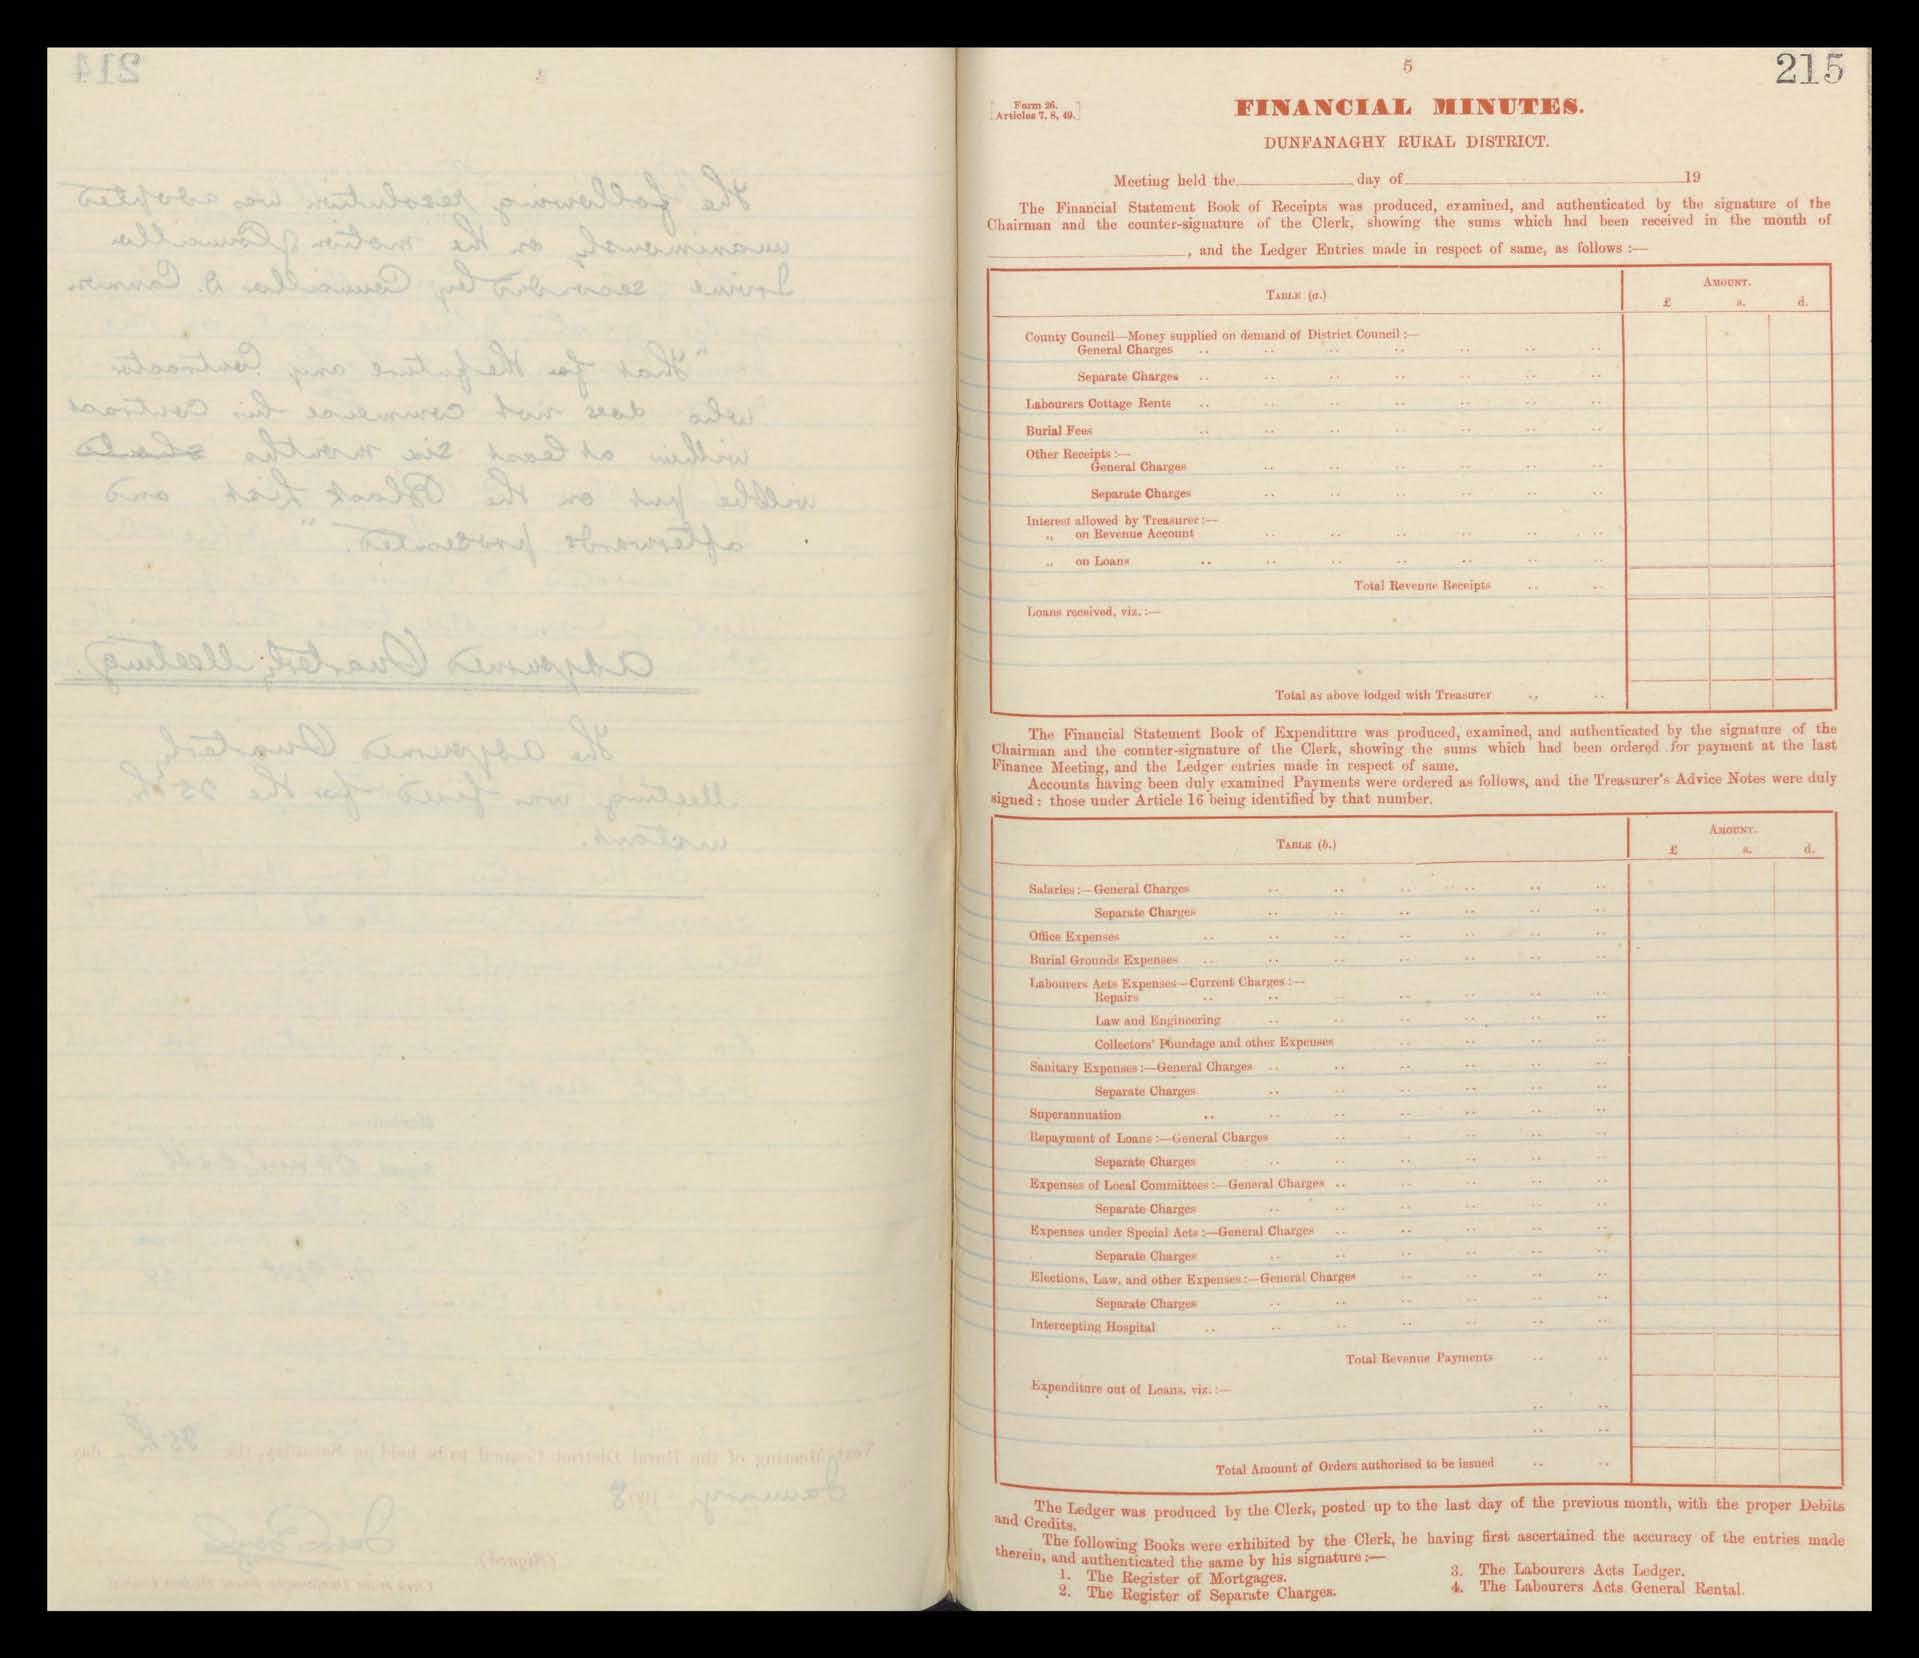 214
The following resolution was adopted
unanimously on the motion of Councillor
Irvine seconded by Councillor D. Connor
"That for the future any Contractor
who does not commence his contract
within at least six months
will be put on the Black List and
afterwards prosecuted."
Adjourned Quarterly Meeting
The adjourned Quarterly
Meeting was fixed for the 25th
instant.
Next Meeting of the Rural District Council to be held on Saturday, the 25th day
January 1908
(Signed)
Clerk to the Dunfanaghy Rural District Council
5
215
Form 26.
[Articles 7, 8, 49.]
FINANCIAL MINUTES.
DUNFANAGHY RURAL DISTRICT.
Meeting held the day of 19
The Financial Statement Book of Receipts was produced, examined, and authenticated by the signature of the
Chairman and the counter-signature of the Clerk, showing the sums which had been received in the month of
, and the Ledger Entries made in respect of same, as follows :—
TABLE (a.)
AMOUNT.
£ s. d.
County Council—Money supplied on demand of District Council :—
General Charges
Separate Charges
Labourers Cottage Rents
Burial Fees
Other Receipts :—
General Charges
Separate Charges
Interest allowed by Treasurer :—
„ on Revenue Account
„ on Loans
Total Revenue Receipts
Loans received, viz. :—
Total as above lodged with Treasurer
The Financial Statement Book of Expenditure was produced, examined, and authenticated by the signature of the
Chairman and the counter-signature of the Clerk, showing the sums which had been ordered for payment at the last
Finance Meeting, and the Ledger entries made in respect of same.
Accounts having been duly examined Payments were ordered as follows, and the Treasurer's Advice Notes were duly
signed : those under Article 16 being identified by that number.
TABLE (b.)
AMOUNT.
£ s. d.
Salaries :—General Charges
Separate Charges
Office Expenses
Burial Grounds Expenses
Labourers Acts Expenses—Current Charges :—
Repairs
Law and Engineering
Collectors' Poundage and other Expenses
Sanitary Expenses :—General Charges
Separate Charges
Superannuation
Repayment of Loans :—General Charges
Separate Charges
Expenses of Local Committees :—General Charges
Separate Charges
Expenses under Special Acts :—General Charges
Separate Charges
Elections, Law, and other Expenses :—General Charges
Separate Charges
Intercepting Hospital
Total Revenue Payments
Expenditure out of Loans, viz. :—
Total Amount of Orders authorised to be issued
The Ledger was produced by the Clerk, posted up to the last day of the previous month, with the proper Debits
and Credits.
The following Books were exhibited by the Clerk, he having first ascertained the accuracy of the entries made
therein, and authenticated the same by his signature :—
1. The Register of Mortgages.
2. The Register of Separate Charges.
3. The Labourers Acts Ledger.
4. The Labourers Acts General Rental.